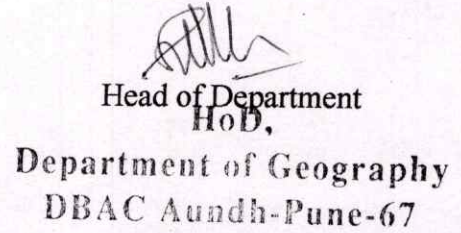 Head of Department
HoD,
Department of Geography
DBAC Aundh-Pune-67